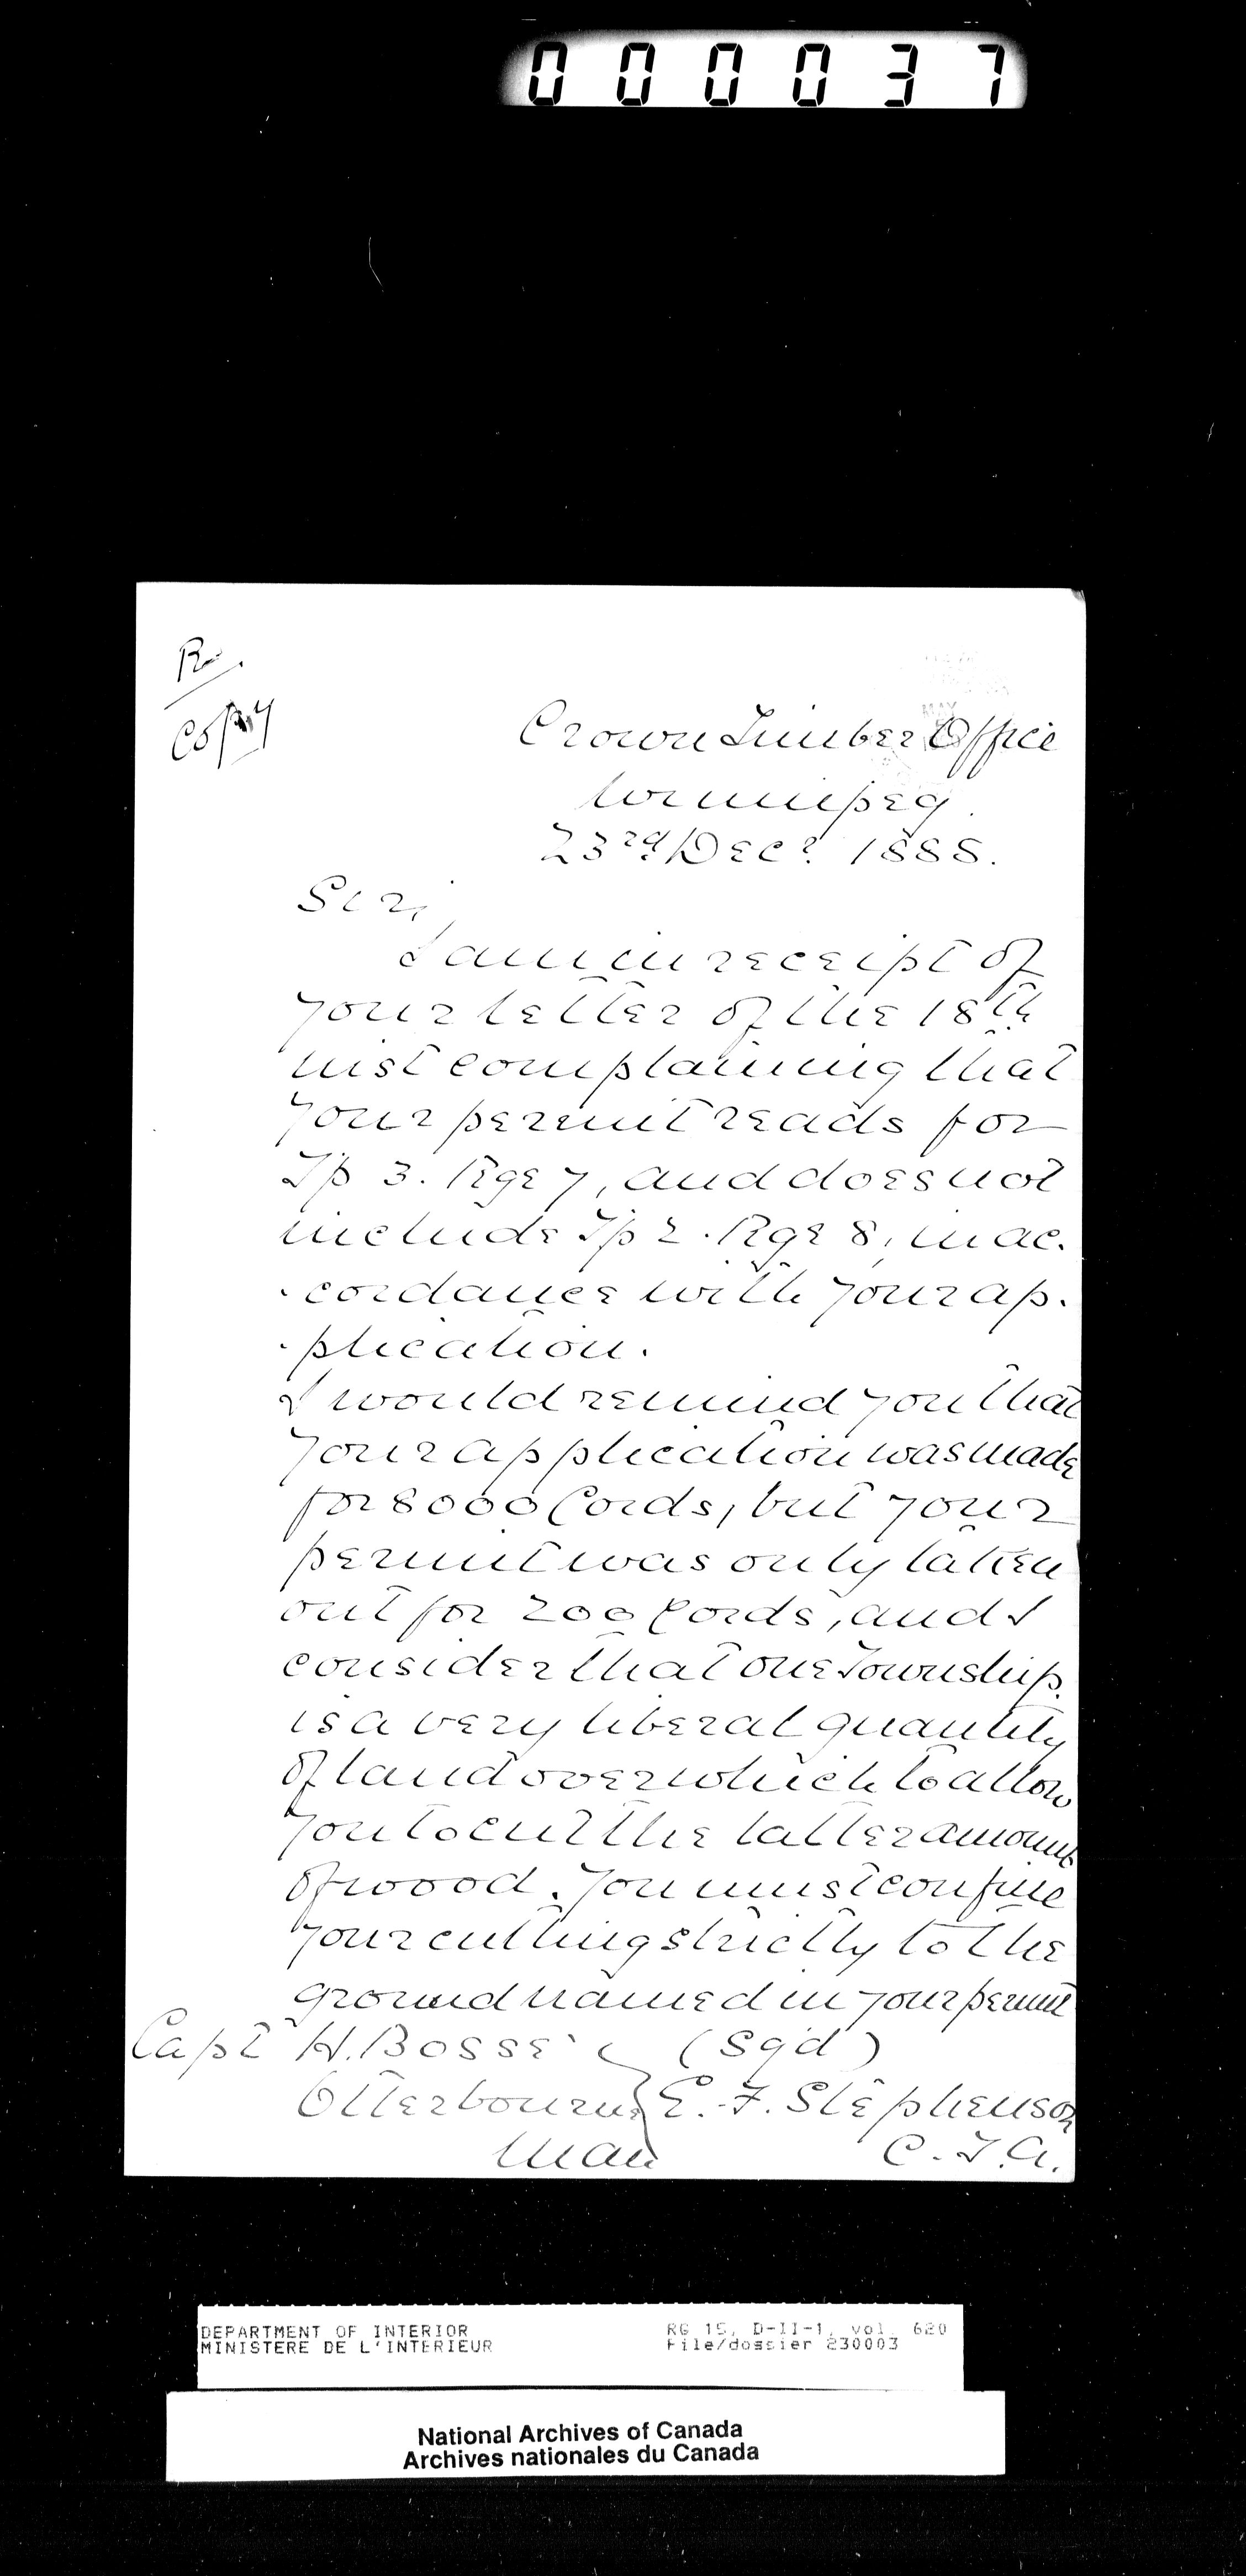 000037
Copy
Crown Timber Office
Winnipeg.
23rd Decr. 1888.
Sir,
I am in receipt of
your letter of the 18th
inst complaining that
your permit reads for
Tp 3. Rge 7, and does not
include Tp 2. Rge 8, in ac.
.cordance with your ap.
.plication.
I would remind you that
your application was made
for 8000 Cords, but your
permit was only taken
out for 200 Cords, and I
consider that one Township.
is a very liberal quantity
of land over which to allow
you to cut the latter amount
of wood. You must confine
your cutting strictly to the
ground named in your permit
Capt H. Bossé (Sgd)
Otterbourne E. F. Stephenson
Man C. T. A.
DEPARTMENT OF INTERIOR RG 15, D-II-1, vol. 620
MINISTERE DE L'INTERIEUR File/dossier 230003
National Archives of Canada
Archives nationales du Canada